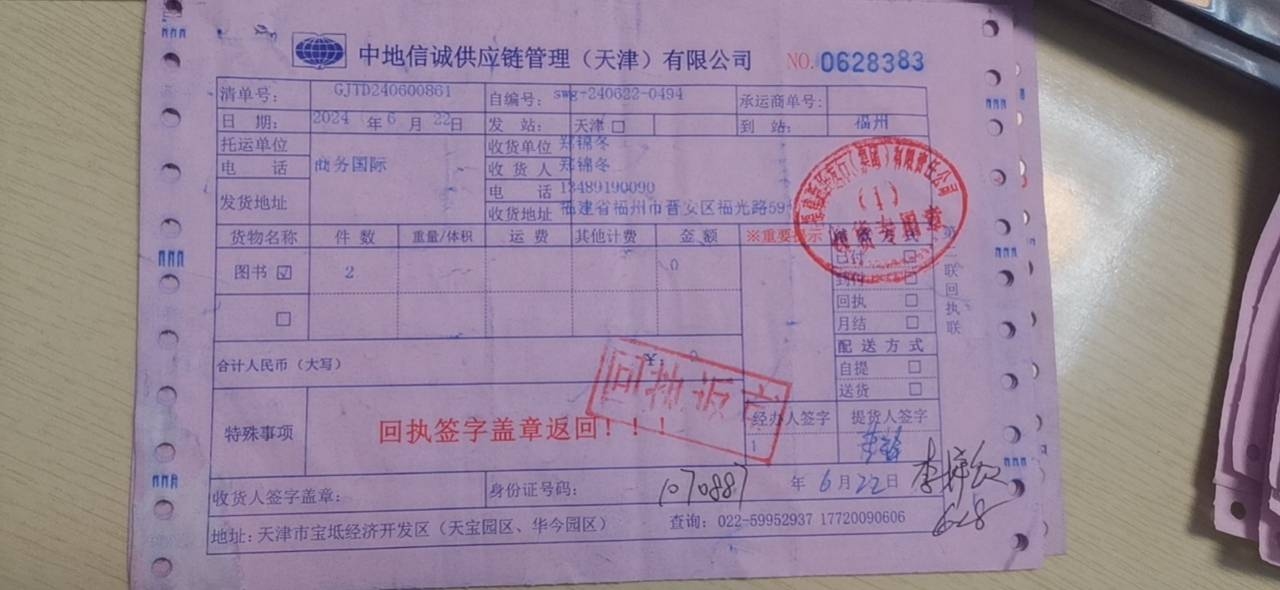 中地信诚供应链管理（天津）有限公司 NO. 0628383
清单号： GJTD240600861 自编号： swg-240622-0494 承运商单号：
日 期： 2024 年 6 月 22 日 发 站： 天津 □ 到 站： 福州
托运单位 商务国际 收货单位 郑锦冬
电 话 收 货 人 郑锦冬
发货地址 电 话 13489190090
收货地址 福建省福州市晋安区福光路59
货物名称 件 数 重量/体积 运 费 其他计费 金 额 ※重要提示 方式
图书 ☑ 2 0 已付 □
到付 □
□ 回执 □
月结 □
合计人民币（大写） ¥： 0 配 送 方 式
自提 □
送货 □
回执返
特殊事项 回执签字盖章返回！！！ 经办人签字 提货人签字
1
收货人签字盖章： 身份证号码： 1070887 年 6 月 22 日
628
地址：天津市宝坻经济开发区（天宝园区、华今园区） 查询：022-59952937 17720090606
（集团）有限责任公司
（1）
专用章
第二联回执联